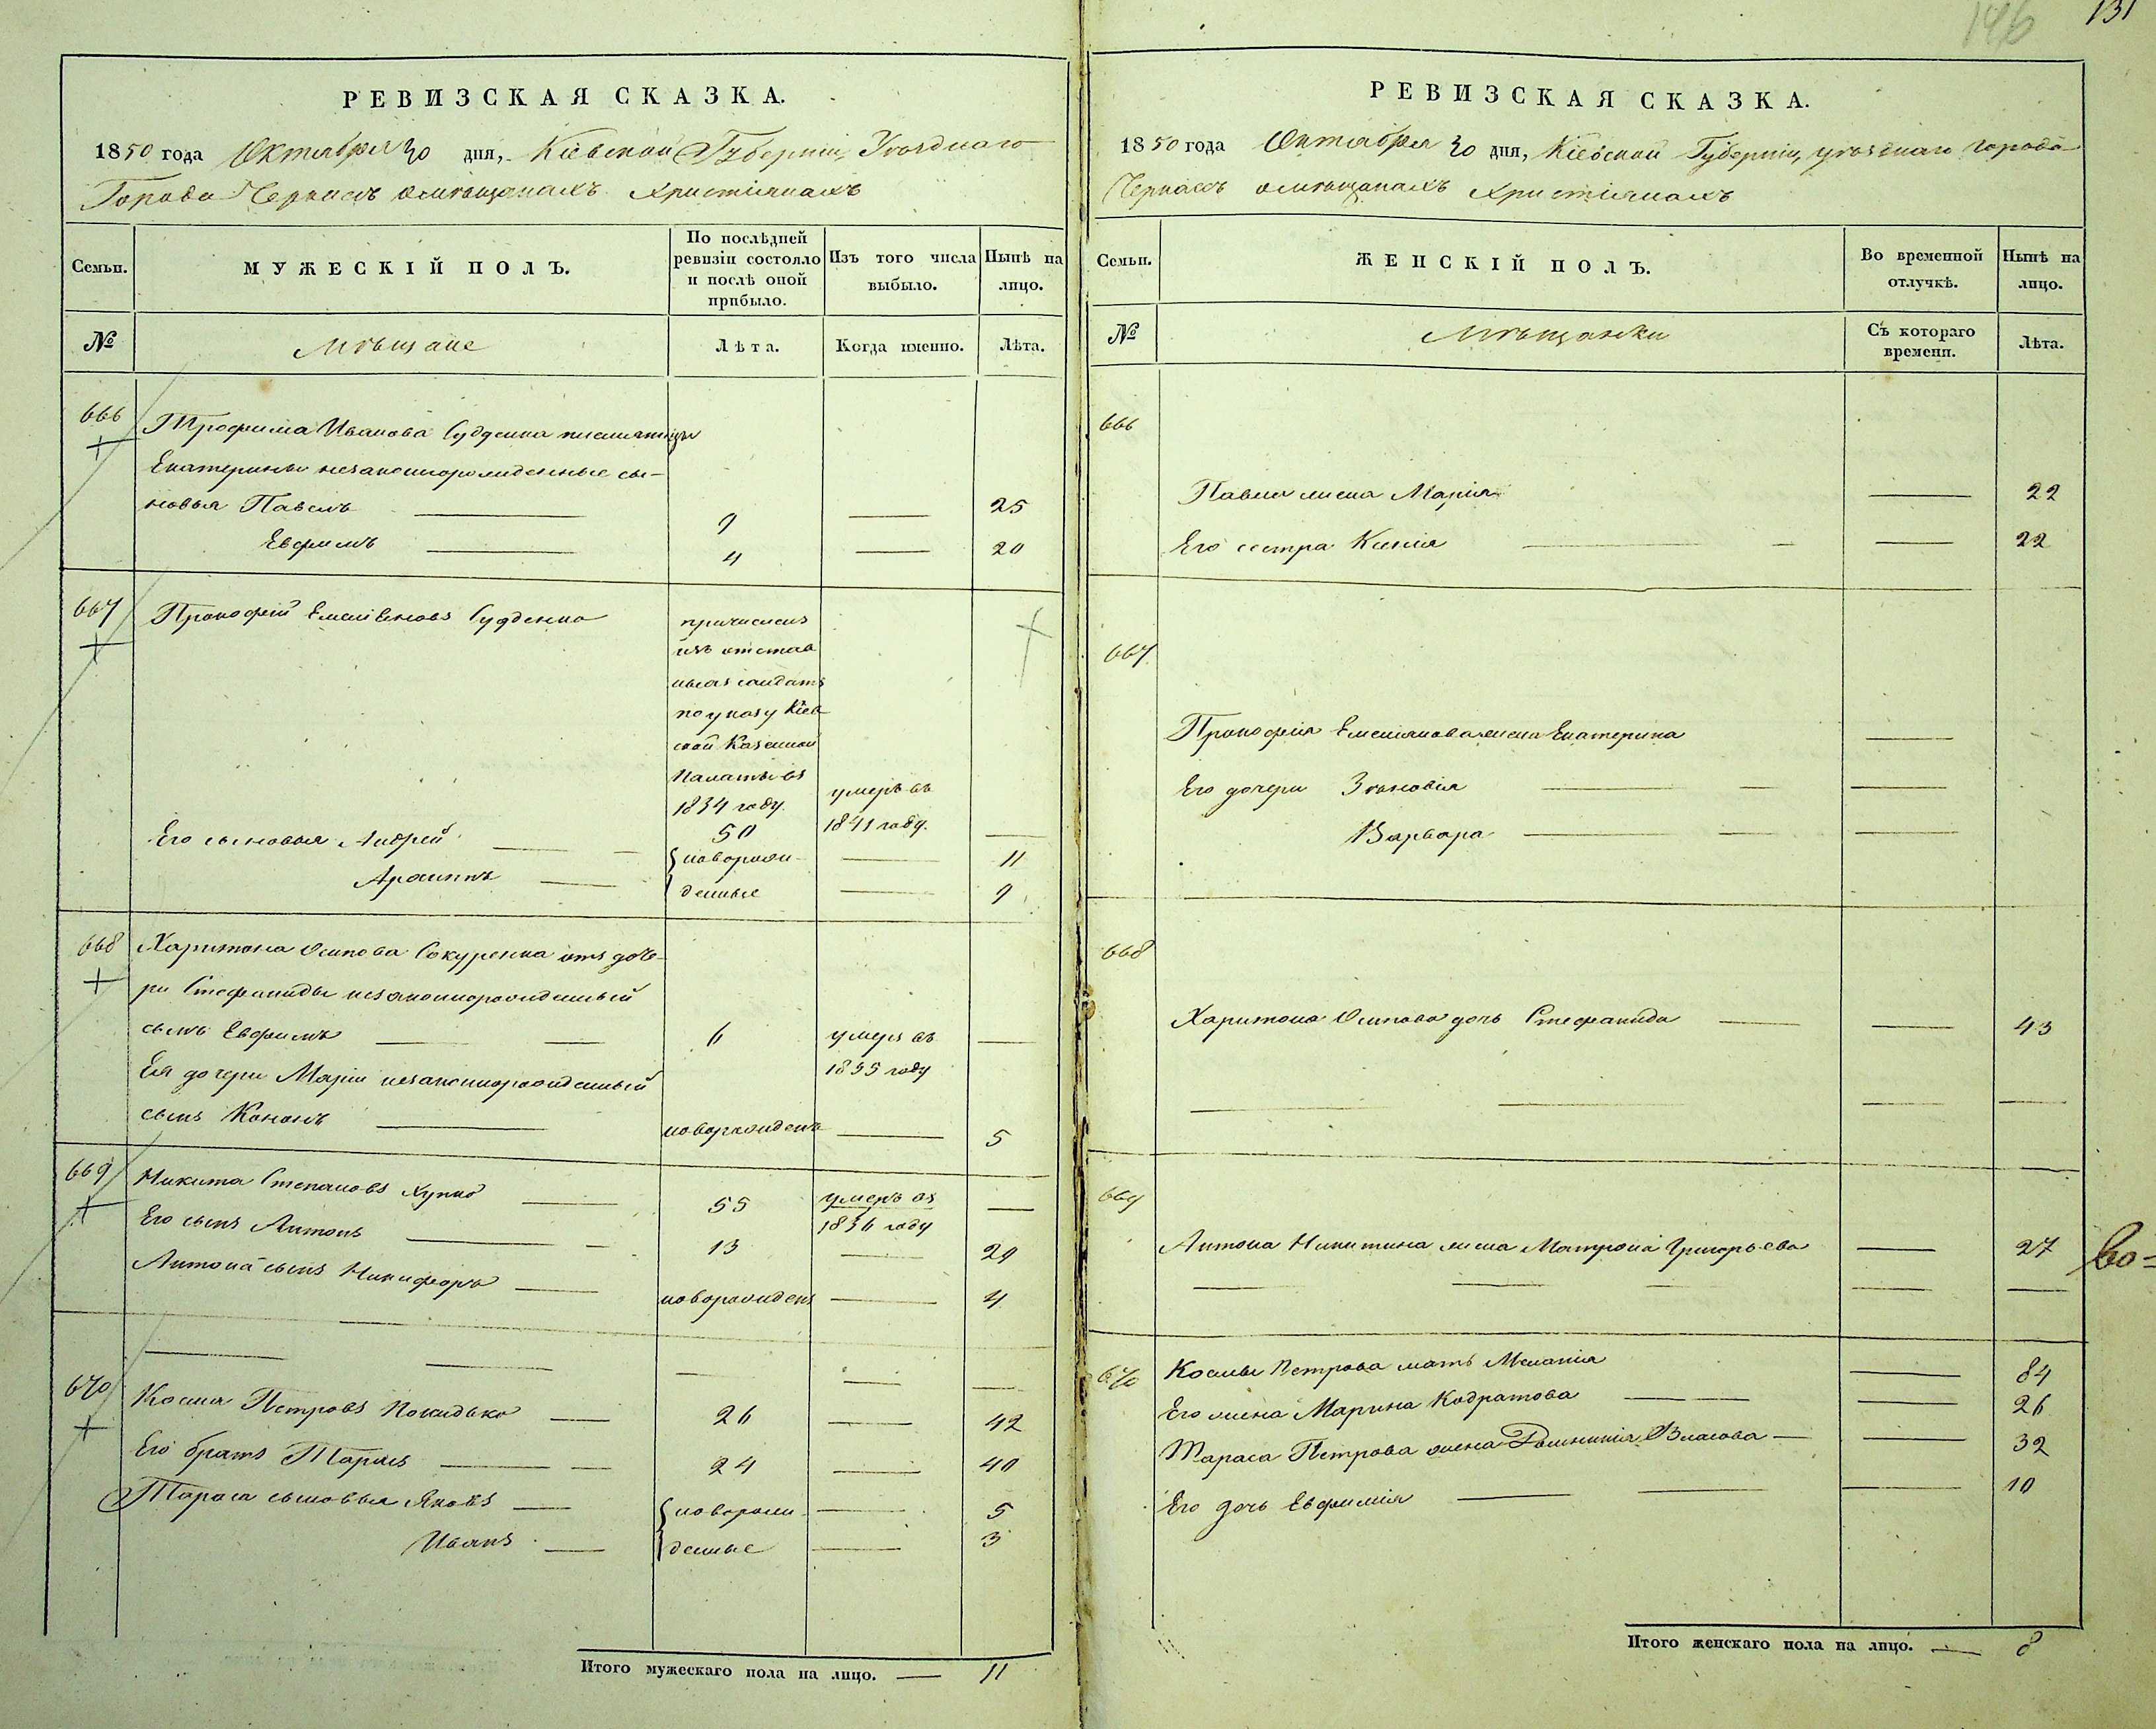 146 131
РЕВИЗСКАЯ СКАЗКА.
1850 года Октября 30 дня, Кіевской Губерніи, Уѣзднаго
Города Черкасъ омѣщанахъ Христіянахъ
Семьи.
МУЖЕСКІЙ ПОЛЪ.
По послѣдней ревизіи состояло и послѣ оной прибыло.
Изъ того числа выбыло.
Нынѣ на лицо.
№
Мѣщане
Лѣта.
Когда именно.
Лѣта.
666
Трофима Иванова Судденка
Екатерины незаконнорожденные сы-
новья Павелъ 9 — 25
Евфимъ 4 — 20
667
Прокофій Емеліяновъ Судденко
причисленъ
изъ отстав
ныхъ солдатъ
по указу Кіев
ской Казенной
Палаты въ
1834 году
50
умеръ въ
1841 году. —
Его сыновья Андрей — новорож- — 11
Архипъ — денные — 9
668
Харитона Осипова Сокуренка отъ доче-
ри Стефаниды незаконнорожденный
сынъ Евфимъ — 6 умеръ въ —
1835 году
Ея дочери Маріи незаконнорожденный
сынъ Кононъ — новорожденъ — 5
669
Никита Степановъ — 55 умеръ въ —
1836 году
Его сынъ Антонъ — 13 — 29
Антона сынъ Никифоръ — новорожденъ — 4
670
Косма Петровъ — 26 — 42
Его братъ Тарасъ — 24 — 40
Тараса сыновья Яковъ — новорож- — 5
Иванъ — денные — 3
Итого мужескаго пола на лицо. — 11
РЕВИЗСКАЯ СКАЗКА.
1850 года Октября 30 дня, Кіевской Губерніи, уѣзднаго города
Черкасъ омѣщанахъ Христіянахъ
Семьи.
ЖЕНСКІЙ ПОЛЪ.
Во временной отлучкѣ.
Нынѣ на лицо.
№
Мѣщанки
Съ котораго времени.
Лѣта.
666
Павла жена Марія — 22
Его сестра Ксенія — 22
667
Прокофія Емеліянова жена Екатерина —
Его дочери Зѣновія —
Варвара —
668
Харитона Осипова дочь Стефанида — 43
669
Антона Никитина жена Матрона Григорьева — 27
во=
670
Космы Петрова мать Меланія — 84
Его жена Марина Кодратова — 26
Тараса Петрова жена Власова — 32
Его дочь Евфимія — 10
Итого женскаго пола на лицо. — 8